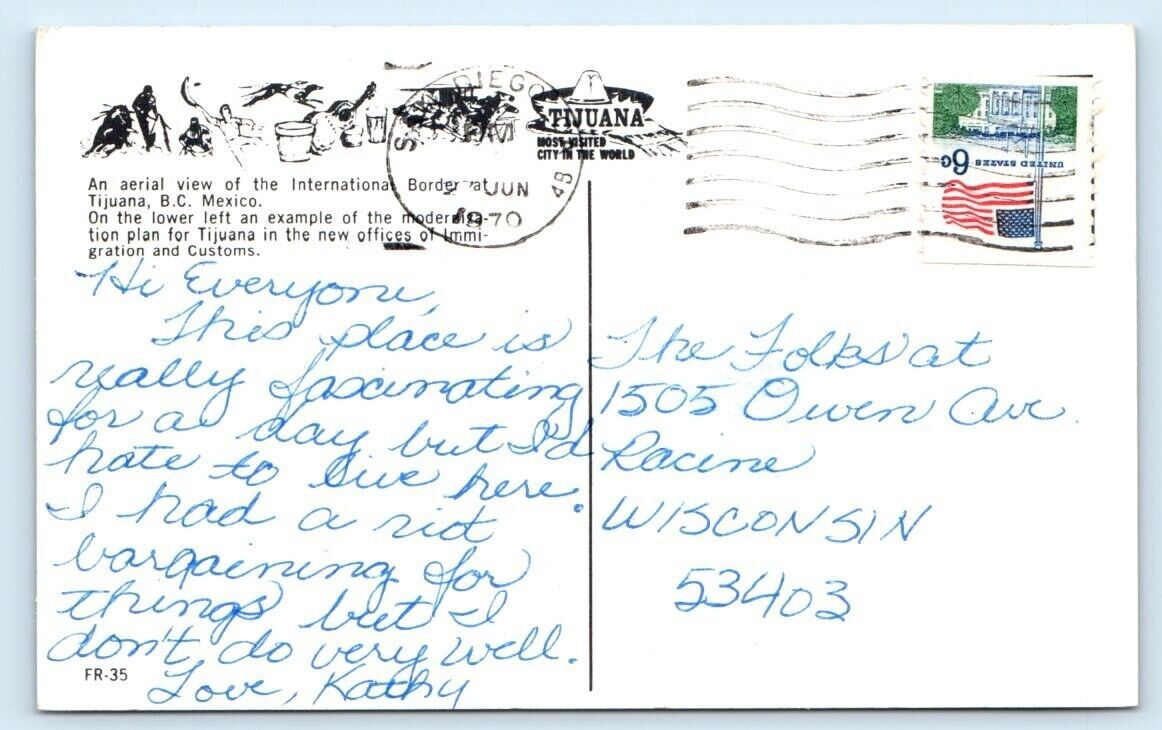 TIJUANA
MOST VISITED
CITY IN THE WORLD
SAN DIEGO
JUN
1970
6c
UNITED STATES
An aerial view of the International Border at
Tijuana, B.C. Mexico.
On the lower left an example of the moderniza-
tion plan for Tijuana in the new offices of Immi-
gration and Customs.
Hi Everyone,
This place is
really fascinating
for a day but I'd
hate to live here.
I had a riot
bargaining for
things but I
don't do very well.
Love, Kathy
FR-35
The Folks at
1505 Owen Ave.
Racine
WISCONSIN
53403